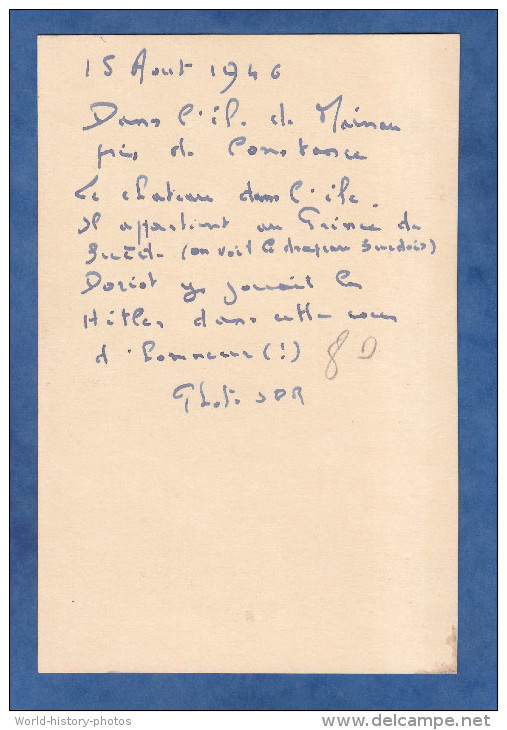 15 Aout 1946
Dans l'île de Mainau
près de Constance
Le chateau dans l'île.
Il appartient au Prince de
Suède (on voit le drapeau Suedois)
Doriot y jouait les
Hitler dans cette cour
d'honneur (!)
8 D
Photo SDR
World-history-photos
www.delcampe.net